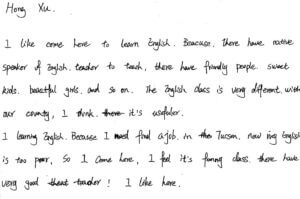 Hong Xu.
I like come here to learn English. Beacuse. there have native
speaker of English. teacher to teach, there have friendly people. sweet
kids. beautful girls. and so on. The English class is very different with
our county, I think. there it's usefuler.
I learning English. Because I need find a job. in the Tucson. now my English
is too poor, So I come here, I feel it's funny class. there have
very good teacher! I like here.